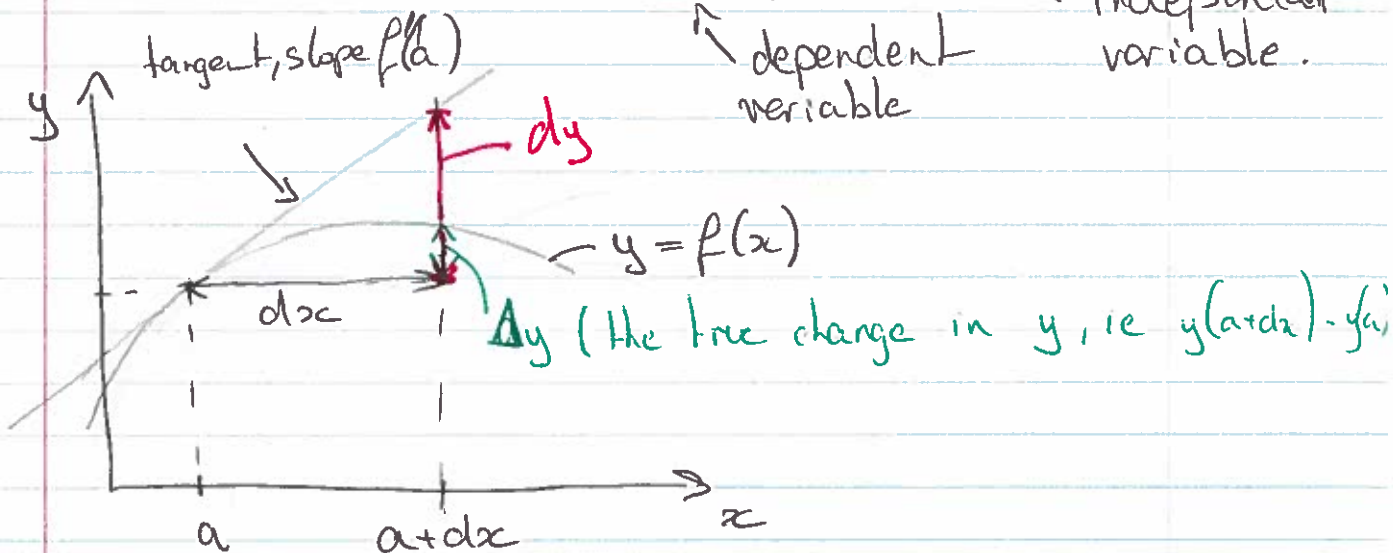 tangent, slope f'(a)
dependent
veriable
variable.
y
dy
y = f(x)
dx
Δy (the true change in y, ie y(a+dx) - y(a)
a
a+dx
x